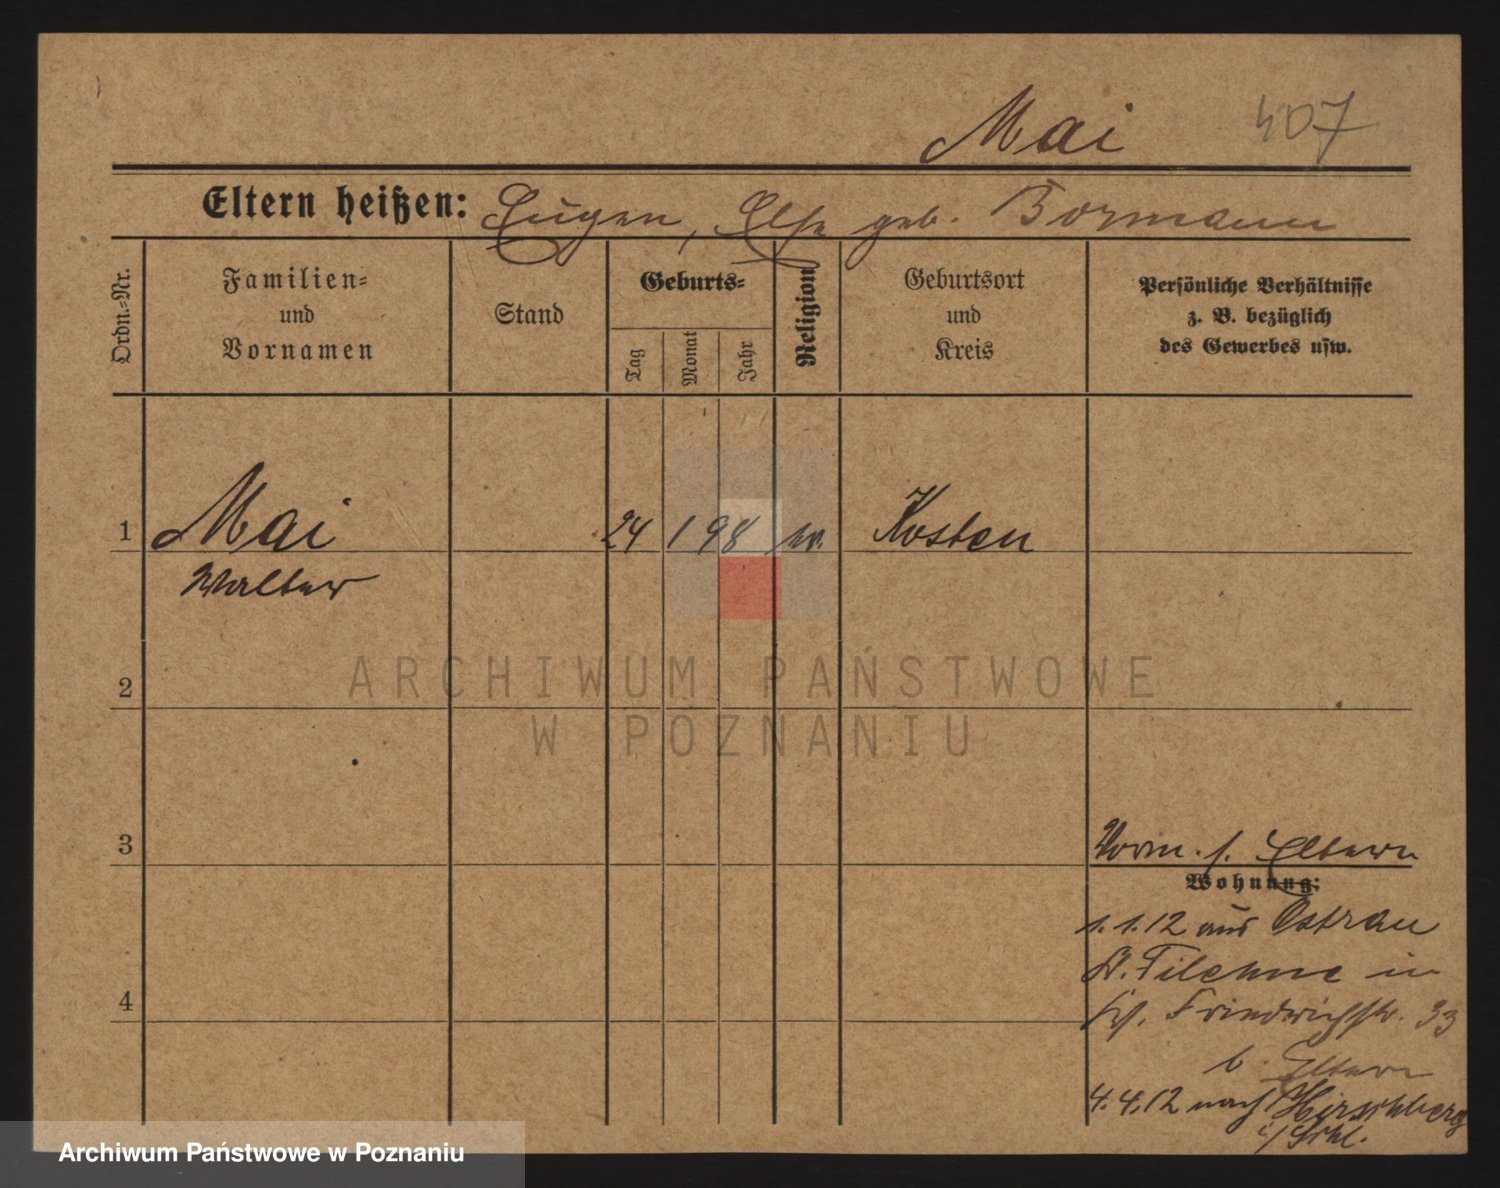 Mai 407
Eltern heißen: Eugen, Else geb. Bormann
Ordn.-Nr.
Familien-
und
Vornamen
Stand
Geburts-
Tag
Monat
Jahr
Religion
Geburtsort
und
Kreis
Persönliche Verhältnisse
z. B. bezüglich
des Gewerbes usw.
1 Mai 24 1 98 ev. Kosten
Walter
ARCHIWUM PAŃSTWOWE
W POZNANIU
2
3
Vorm. s. Eltern
Wohnung:
1.1.12 aus Ostrau
Filehne in
Friedrichstr. 33
b. Eltern
4
4.4.12 nach Hirschberg
i/Schl.
Archiwum Państwowe w Poznaniu